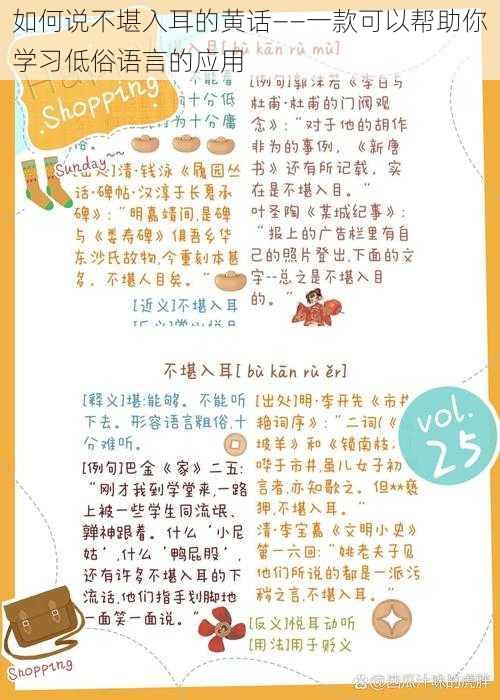 如何说不堪入耳的黄话——一款可以帮助你
学习低俗语言的应用
Shopping
Sunday~~
[出处]清·钱泳《履园丛
话·碑帖·汉淳于长夏承
碑》:“明嘉靖间,是碑
与《娄寿碑》俱吾乡华
东沙氏故物,今重刻本甚
多,不堪入目矣。”
[近义]不堪入耳
[例句]郭沫若《李白与
杜甫·杜甫的门阀观
念》:“对于他的胡作
非为的事例,《新唐
书》还有所记载,实
在是不堪入目。”
叶圣陶《某城纪事》:
“报上的广告栏里有自
己的照片登出,下面的文
字--总之是不堪入目
的。”
不堪入耳[bù kān rù ěr]
[释义]堪:能够。不能听
下去。形容语言粗俗,十
分难听。
[例句]巴金《家》二五:
“刚才我到学堂来,一路
上被一些学生同流氓、
亸神跟着。什么‘小尼
姑’,什么‘鸭屁股’,
还有许多不堪入耳的下
流话,他们指手划脚地
一面笑一面说。”
[出处]明·李开先《市井
艳词序》:“二词(《
坡羊》和《锁南枝》
哗于市井,虽儿女子初
言者,亦知歌之。但**亵
狎,不堪入耳。”
清·李宝嘉《文明小史》
第一六回:“姚老夫子见
他们所说的都是一派污
秽之言,不堪入耳。”
[反义]悦耳动听
[用法]用于贬义
vol.
25
Shopping